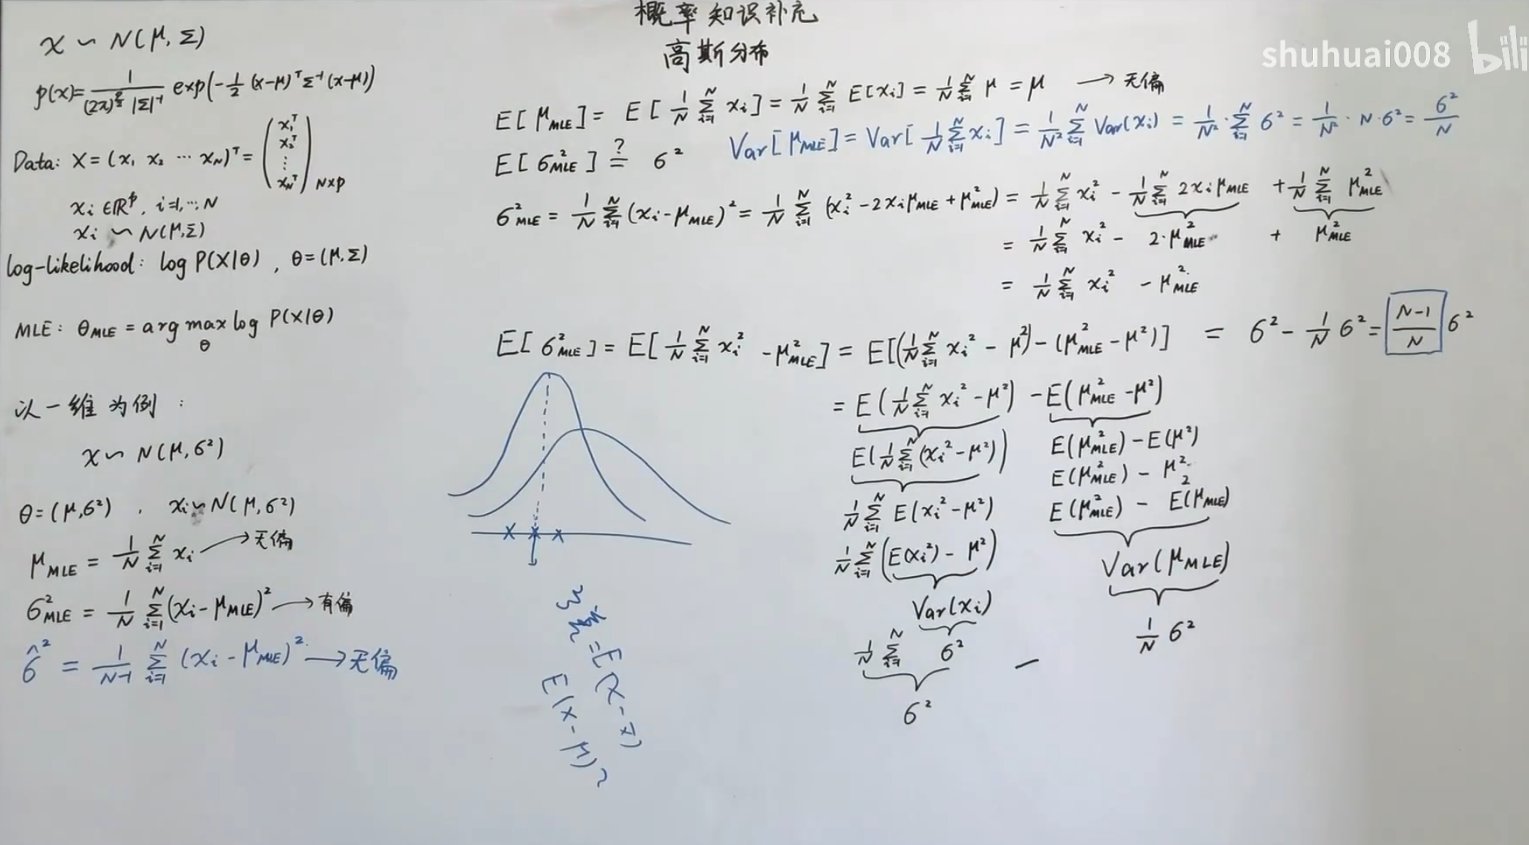 概率知识补充
高斯分布
shuhuai008 bili
x ~ N(μ, Σ)
p(x) = 1/((2π)^{p/2} |Σ|^{-1}) exp(-1/2 (x-μ)^T Σ^{-1} (x-μ))
Data: X = (x₁ x₂ ⋯ x_N)^T = (x₁^T x₂^T ⋮ x_N^T)_{N×p}
x_i ∈ ℝ^p, i=1,⋯,N
x_i ~ N(μ,Σ)
log-likelihood: log P(X|θ), θ=(μ,Σ)
MLE: θ_MLE = arg max_θ log P(X|θ)
以一维为例:
x ~ N(μ,σ²)
θ=(μ,σ²), x_i ~ N(μ,σ²)
μ_MLE = 1/N Σ_{i=1}^N x_i → 无偏
σ²_MLE = 1/N Σ_{i=1}^N (x_i - μ_MLE)² → 有偏
σ̂² = 1/(N-1) Σ_{i=1}^N (x_i - μ_MLE)² → 无偏
E[μ_MLE] = E[1/N Σ_{i=1}^N x_i] = 1/N Σ_{i=1}^N E[x_i] = 1/N Σ_{i=1}^N μ = μ → 无偏
Var[μ_MLE] = Var[1/N Σ_{i=1}^N x_i] = 1/N² Σ_{i=1}^N Var(x_i) = 1/N² · Σ_{i=1}^N σ² = 1/N² · N·σ² = σ²/N
E[σ²_MLE] ?= σ²
σ²_MLE = 1/N Σ_{i=1}^N (x_i - μ_MLE)² = 1/N Σ_{i=1}^N (x_i² - 2x_iμ_MLE + μ²_MLE) = 1/N Σ_{i=1}^N x_i² - 1/N Σ_{i=1}^N 2x_iμ_MLE + 1/N Σ_{i=1}^N μ²_MLE
= 1/N Σ_{i=1}^N x_i² - 2·μ²_MLE + μ²_MLE
= 1/N Σ_{i=1}^N x_i² - μ²_MLE
E[σ²_MLE] = E[1/N Σ_{i=1}^N x_i² - μ²_MLE] = E[(1/N Σ_{i=1}^N x_i² - μ²) - (μ²_MLE - μ²)] = σ² - 1/N σ² = (N-1)/N σ²
= E(1/N Σ_{i=1}^N x_i² - μ²) - E(μ²_MLE - μ²)
E(1/N Σ_{i=1}^N (x_i² - μ²))
1/N Σ_{i=1}^N E(x_i² - μ²)
1/N Σ_{i=1}^N (E(x_i²) - μ²)
Var(x_i)
1/N Σ_{i=1}^N σ²
σ²
E(μ²_MLE) - E(μ²)
E(μ²_MLE) - μ²
E(μ²_MLE) - E²(μ_MLE)
Var(μ_MLE)
1/N σ²
−
= E(x - x̄)
E(x - μ)²